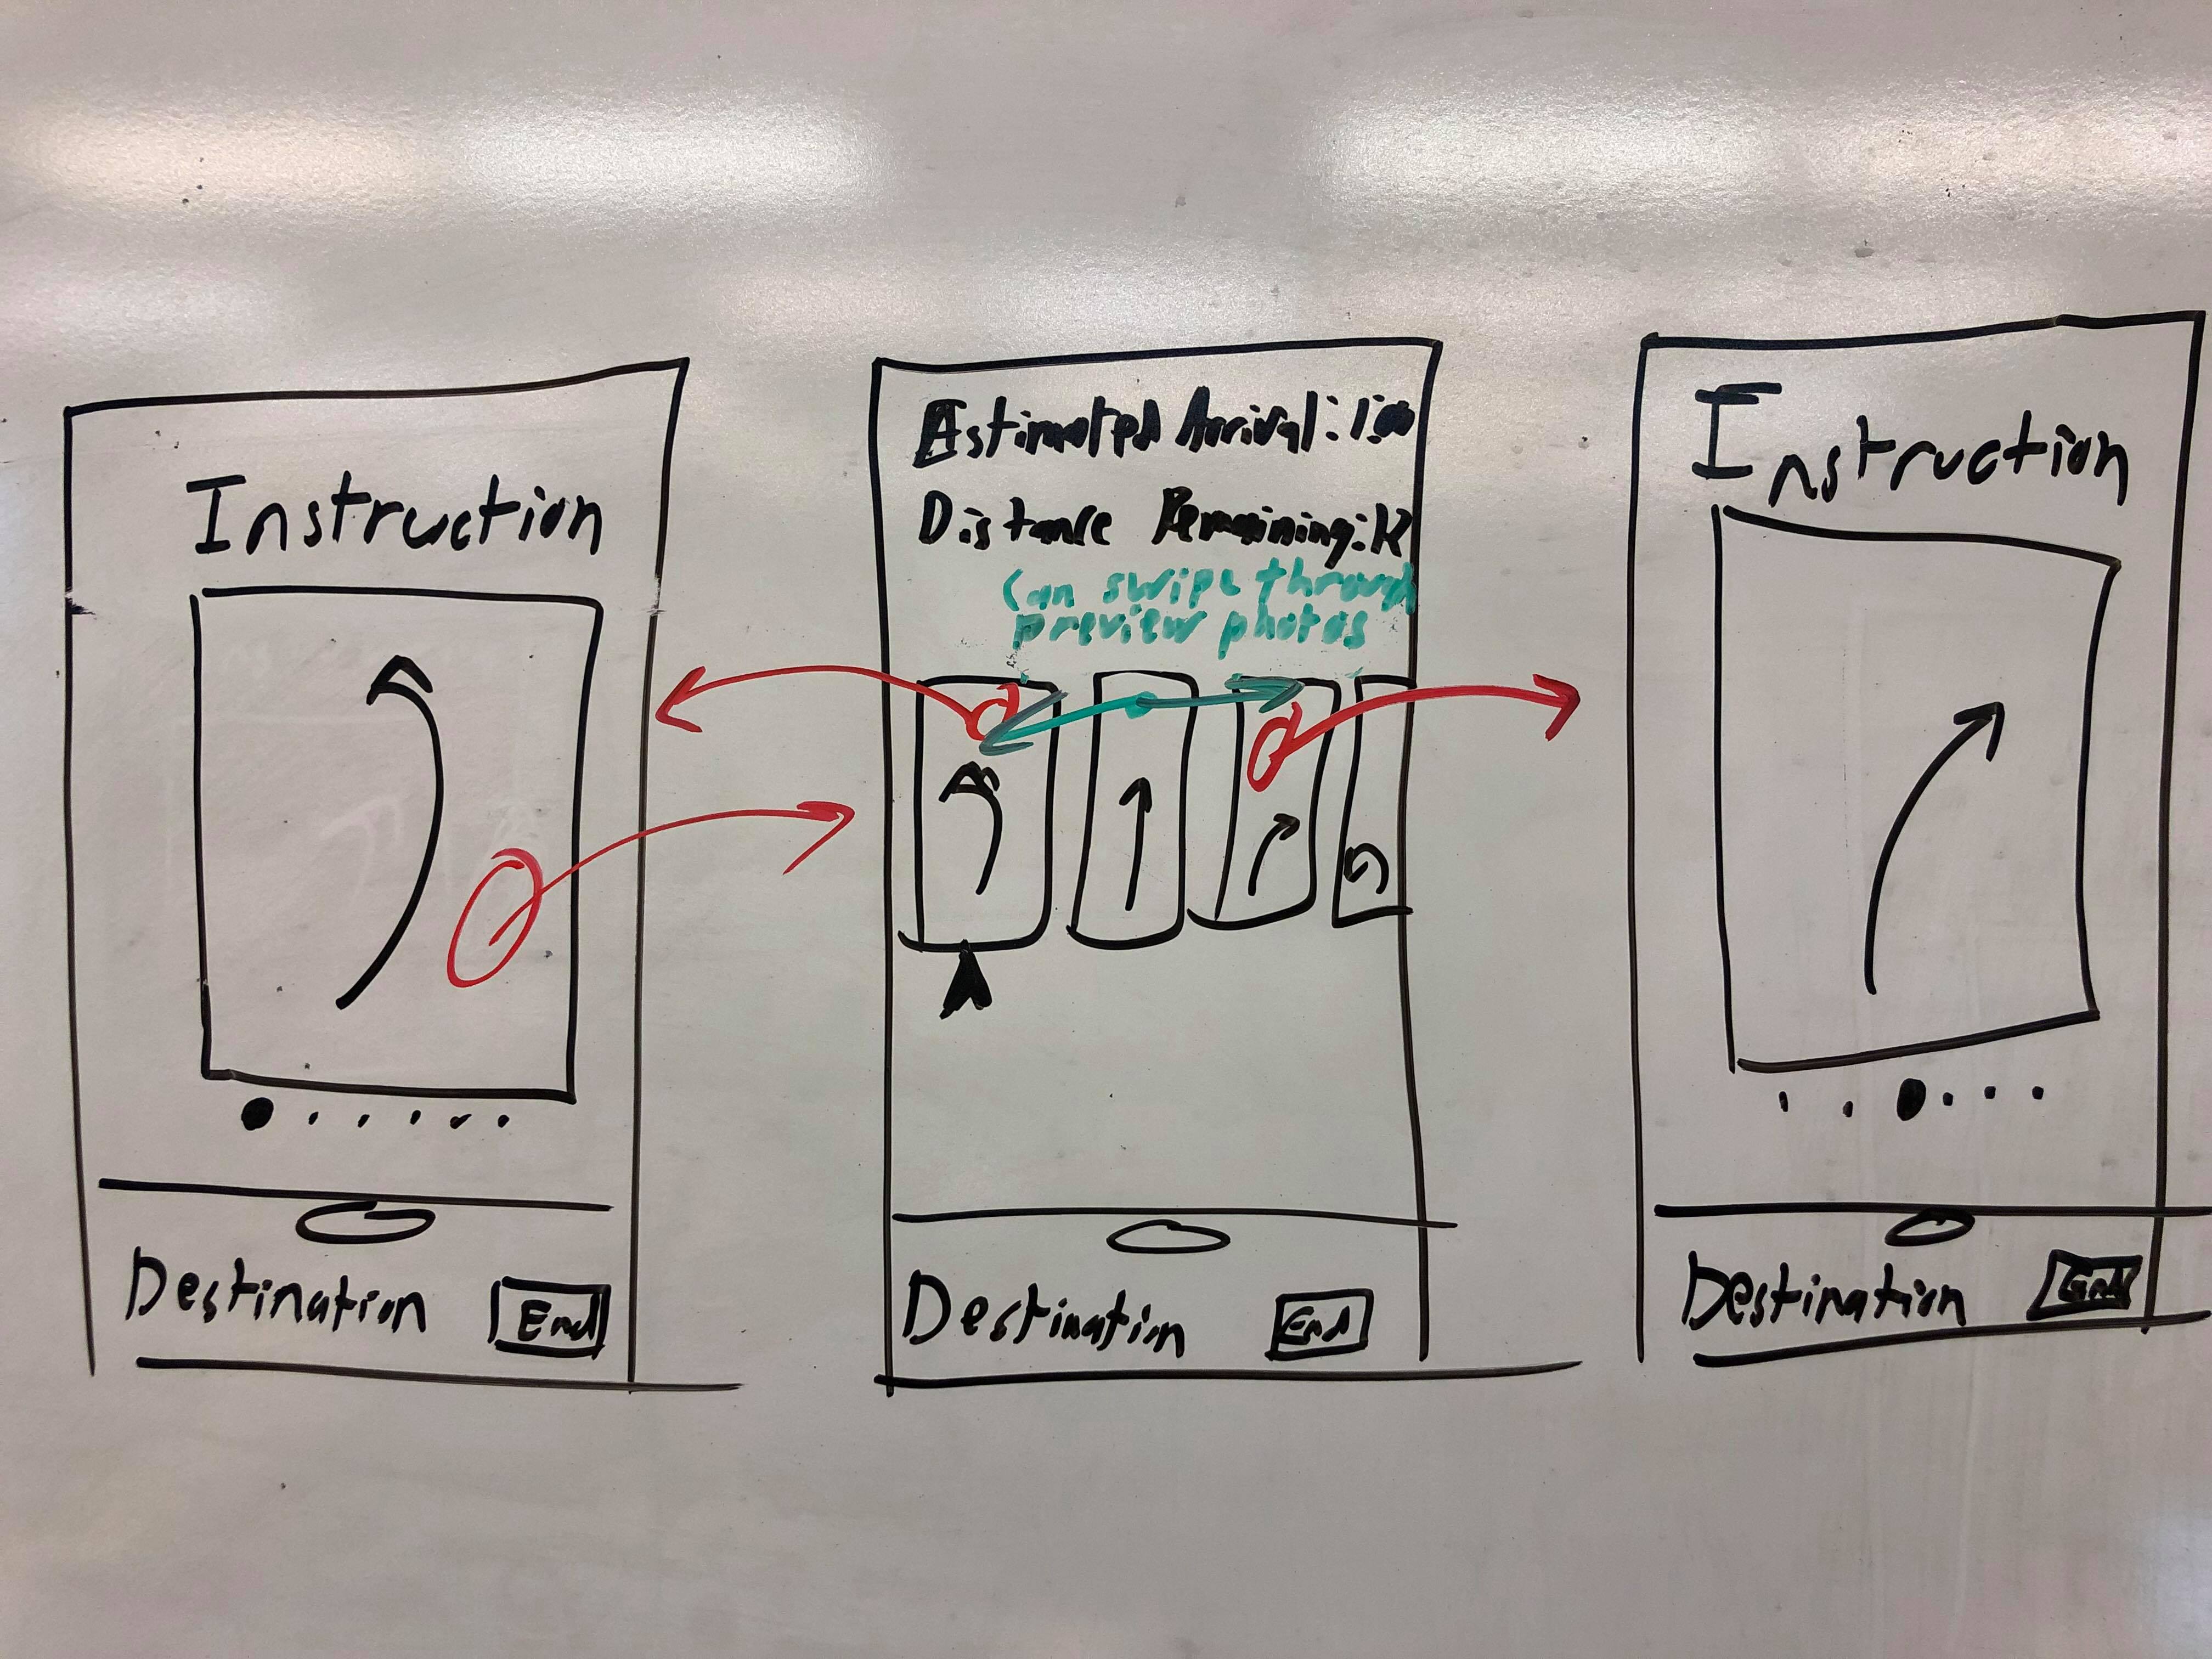 Instruction
Destination
End
Estimated Arrival: 1:00
Distance Remaining:
Can swipe through
preview photos
Destination
End
Instruction
Destination
End